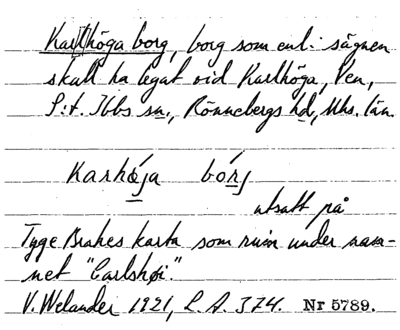 Karlhöga borg, borg som enl. sägnen
skall ha legat vid Karlhöga, Ven,
S:t. Ibbs sn., Rönnebergs hd, Mhs. län.
Karhöja bórj
utsatt på
Tyge Brahes karta som ruin under nam-
net "Carlshøi."
V. Welander 1921, L.A. 374. Nr 5789.